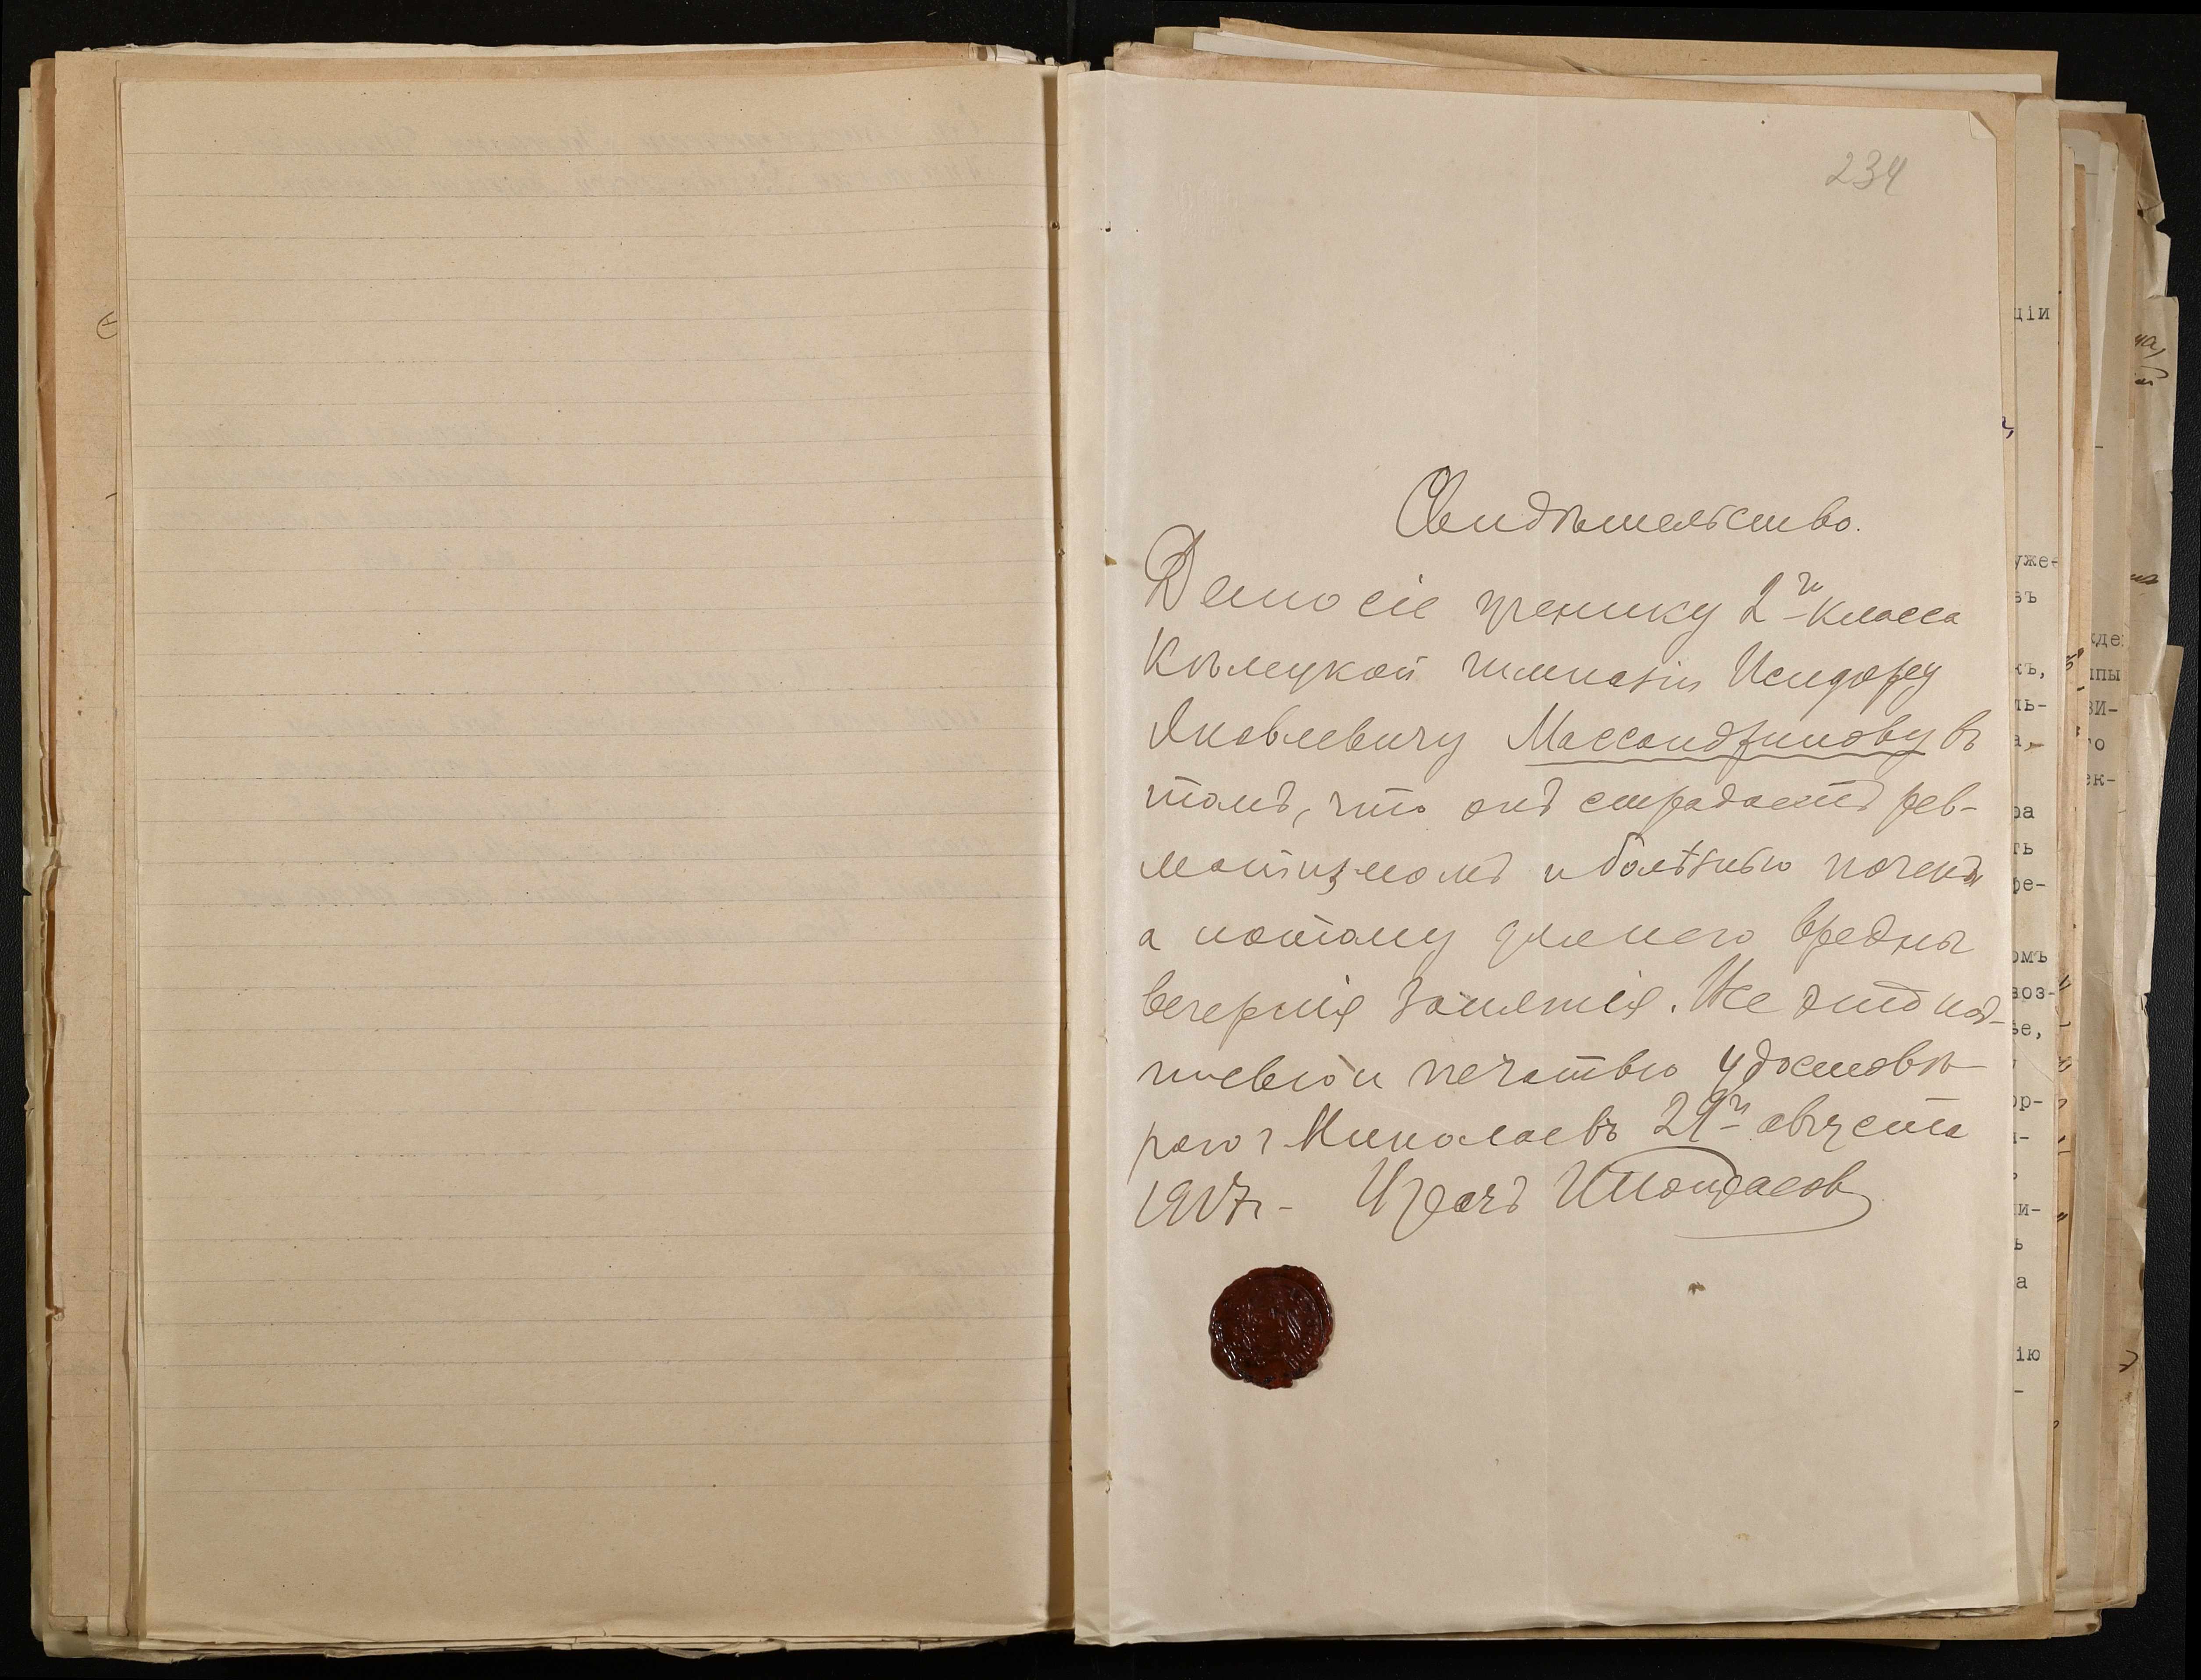 234
Свидѣтельство.
Дано сіе ученику 2го класса
Кѣлецкой гимназіи Исидору
Яковлевичу Массандзинову въ
томъ, что онъ страдаетъ рев-
матизмомъ и болѣзнью почекъ
а потому для него вредны
вечернія занятія. Же это под-
писью и печатью удостовѣ-
раю г Николаевъ 29го августа
1917г - Врачъ
ціи
уже-
въ
ль-
ра
ть
фе-
омъ
воз-
ье,
ор-
ли-
ь
а
ію
-
жде
ппы
ви-
го
ек-